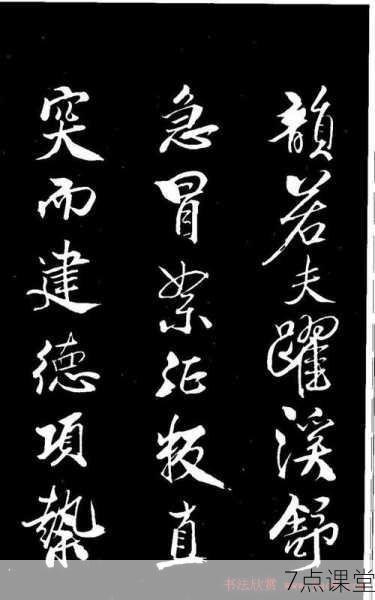 韻若夫躍溪舒
急冒絮征叛直
突而建德項縶
书法欣赏
7点课堂